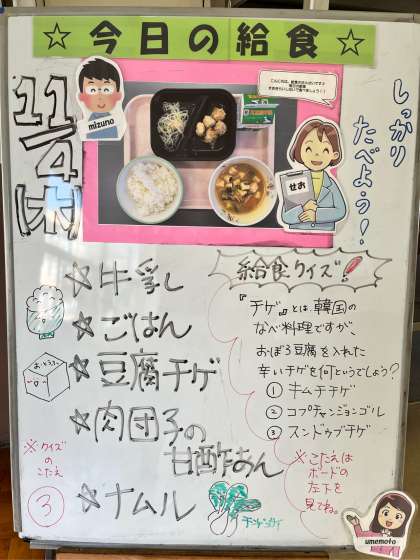 ☆ 今日の給食 ☆
11/4(木)
mizuno
せお
しっかり
たべよう!
☆牛乳
☆ごはん
☆豆腐チゲ
☆肉団子の
甘酢あん
☆ナムル
チンゲンサイ
給食クイズ!
『チゲ』とは韓国の
なべ料理ですが、
おぼろ豆腐を入れた
辛いチゲを何というでしょう?
① キムチチゲ
② コプチャンジョンゴル
③ スンドゥブチゲ
※こたえは
ボードの
左下を
見てね。
※クイズ
のこたえ
③
umemoto